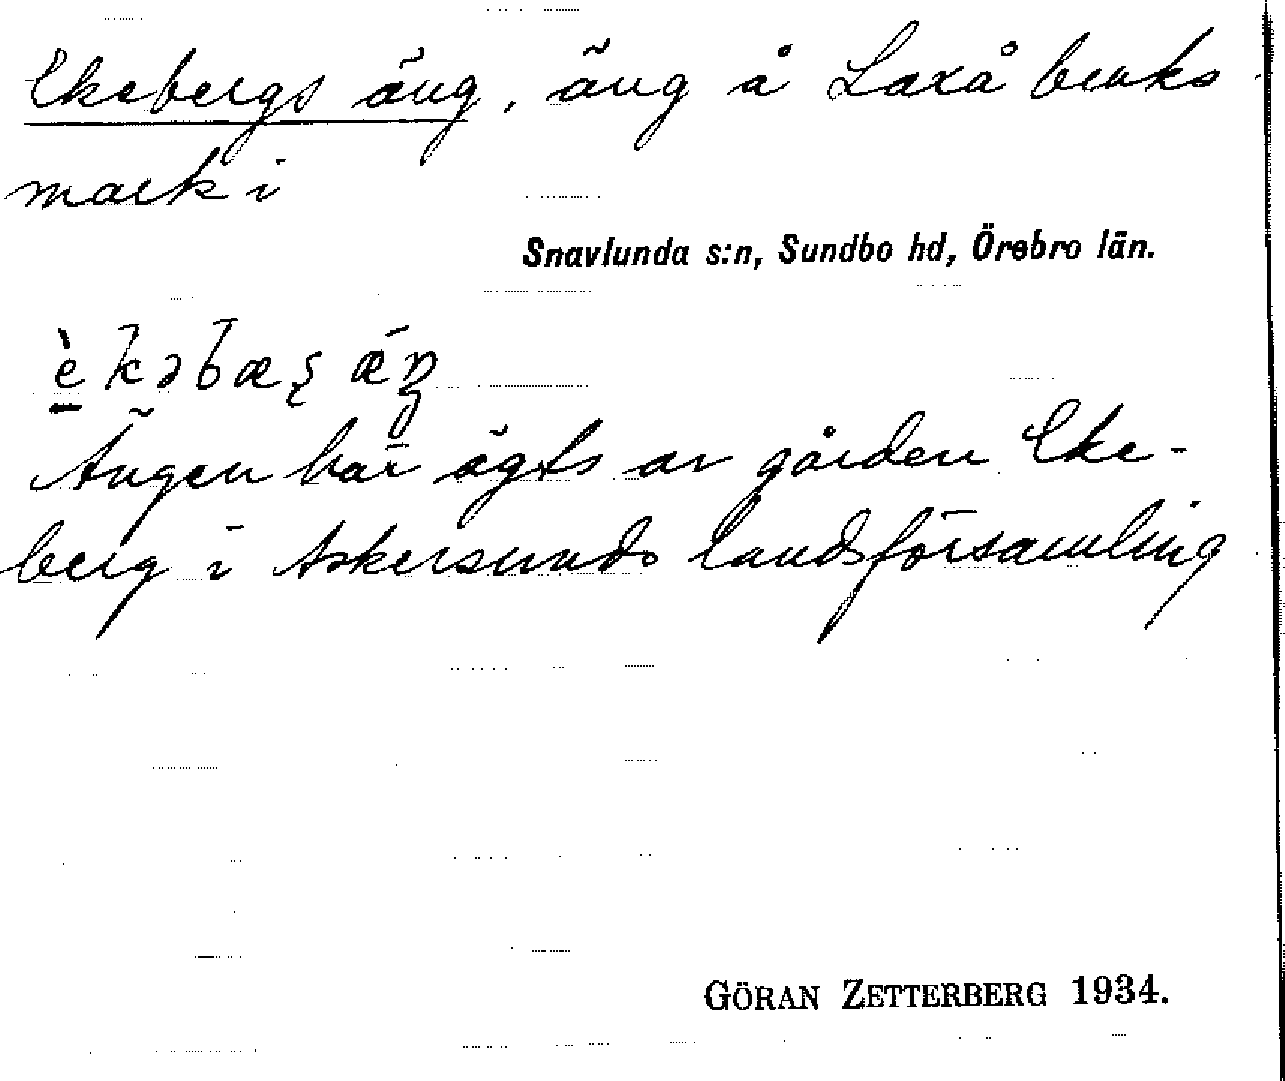 Ekebergs äng, äng å Laxå bruks
mark i
Snavlunda s:n, Sundbo hd, Örebro län.
èkəbæʂ ǽŋ
Ängen har ägts av gården Eke-
berg i Askersunds landsförsamling
GÖRAN ZETTERBERG 1934.